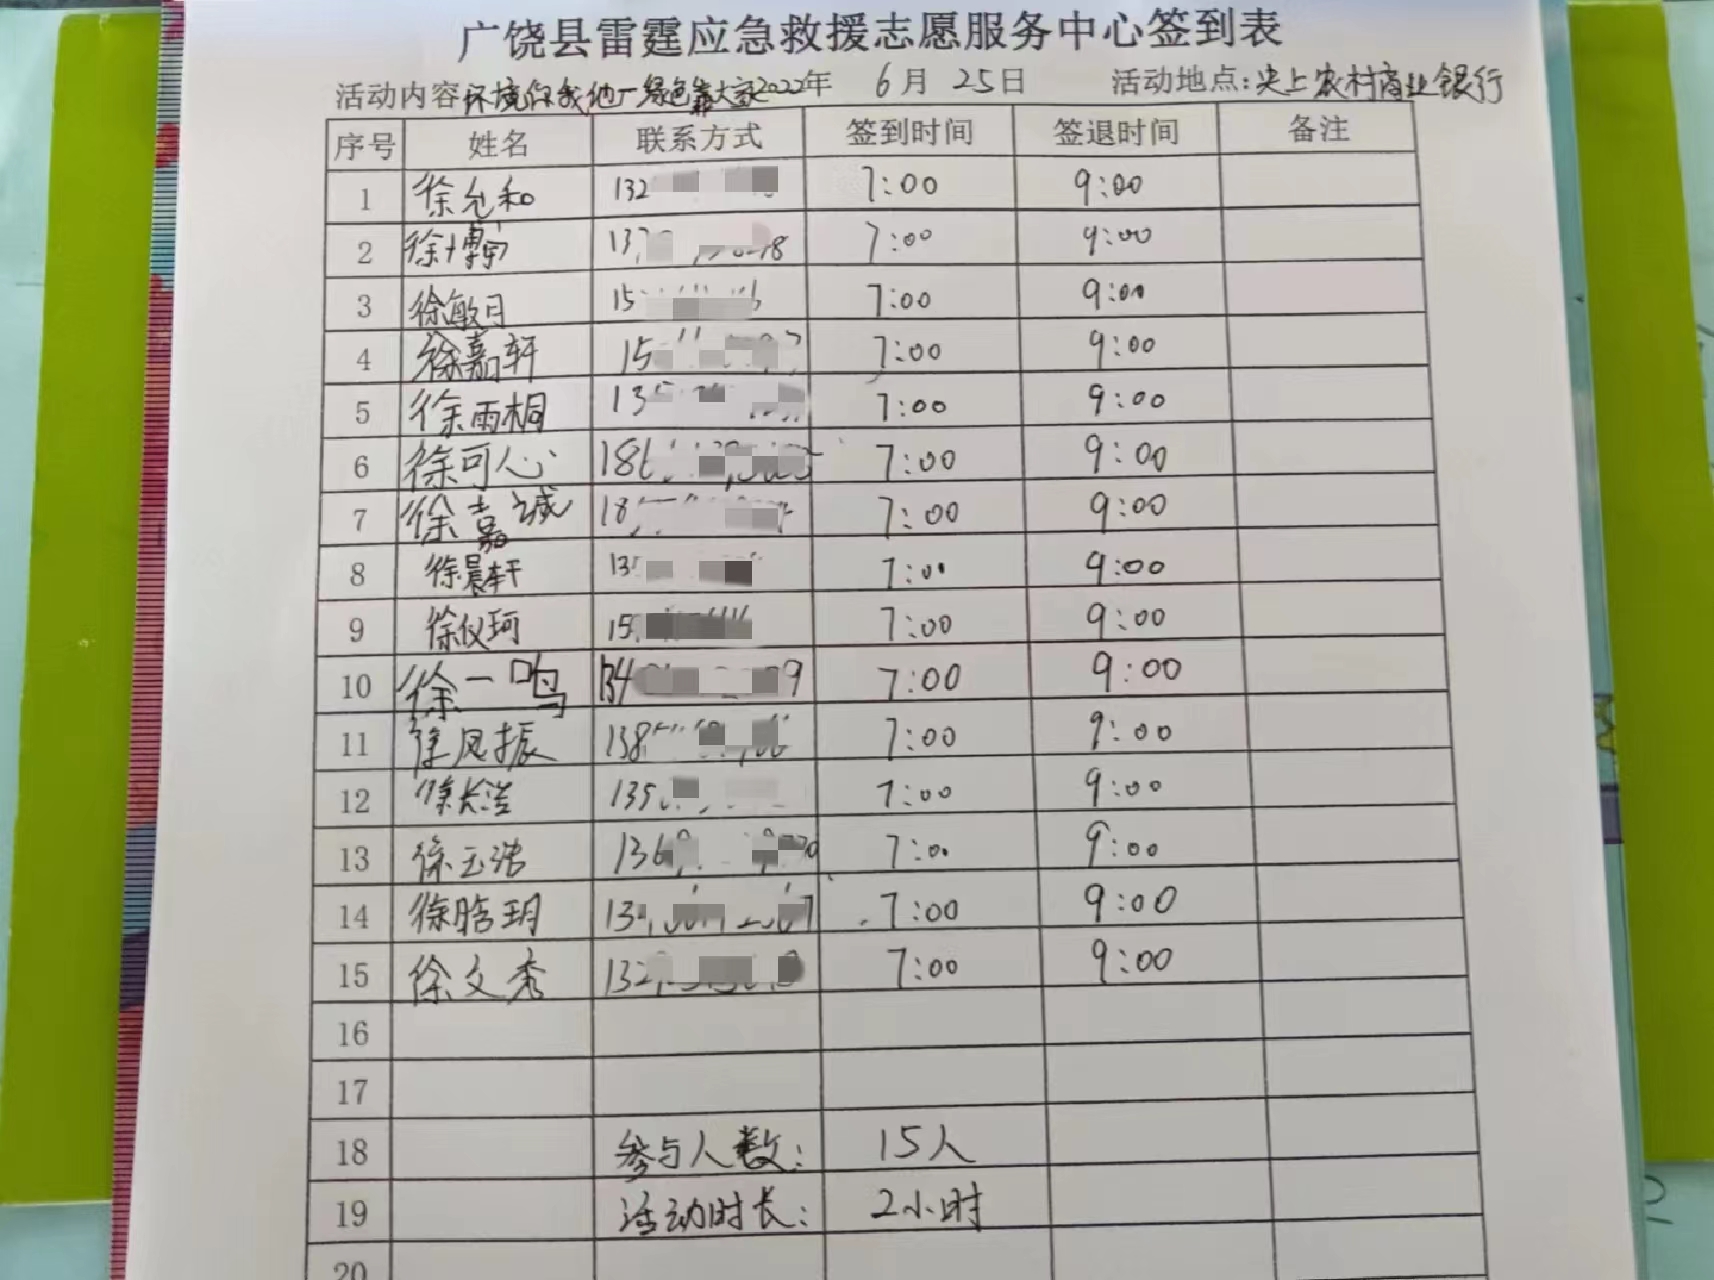 广饶县雷霆应急救援志愿服务中心签到表
活动内容 环境你我他一绿色靠大家 2022年 6月 25日 活动地点:尖上农村商业银行
序号 姓名 联系方式 签到时间 签退时间 备注
1 徐允和 132 7:00 9:00
2 徐博 137 7:00 9:00
3 徐敏月 15 7:00 9:00
4 徐嘉轩 15 7:00 9:00
5 徐雨桐 135 7:00 9:00
6 徐可心 186 7:00 9:00
7 徐嘉诚 18 7:00 9:00
8 徐晨轩 13 7:00 9:00
9 徐仪珂 15 7:00 9:00
10 徐一鸣 134 9 7:00 9:00
11 徐凤振 138 7:00 9:00
12 徐长浩 135 7:00 9:00
13 徐玉浩 136 7:00 9:00
14 徐晗玥 13 7:00 9:00
15 徐文秀 132 7:00 9:00
16
17
18 参与人数: 15人
19 活动时长: 2小时
20